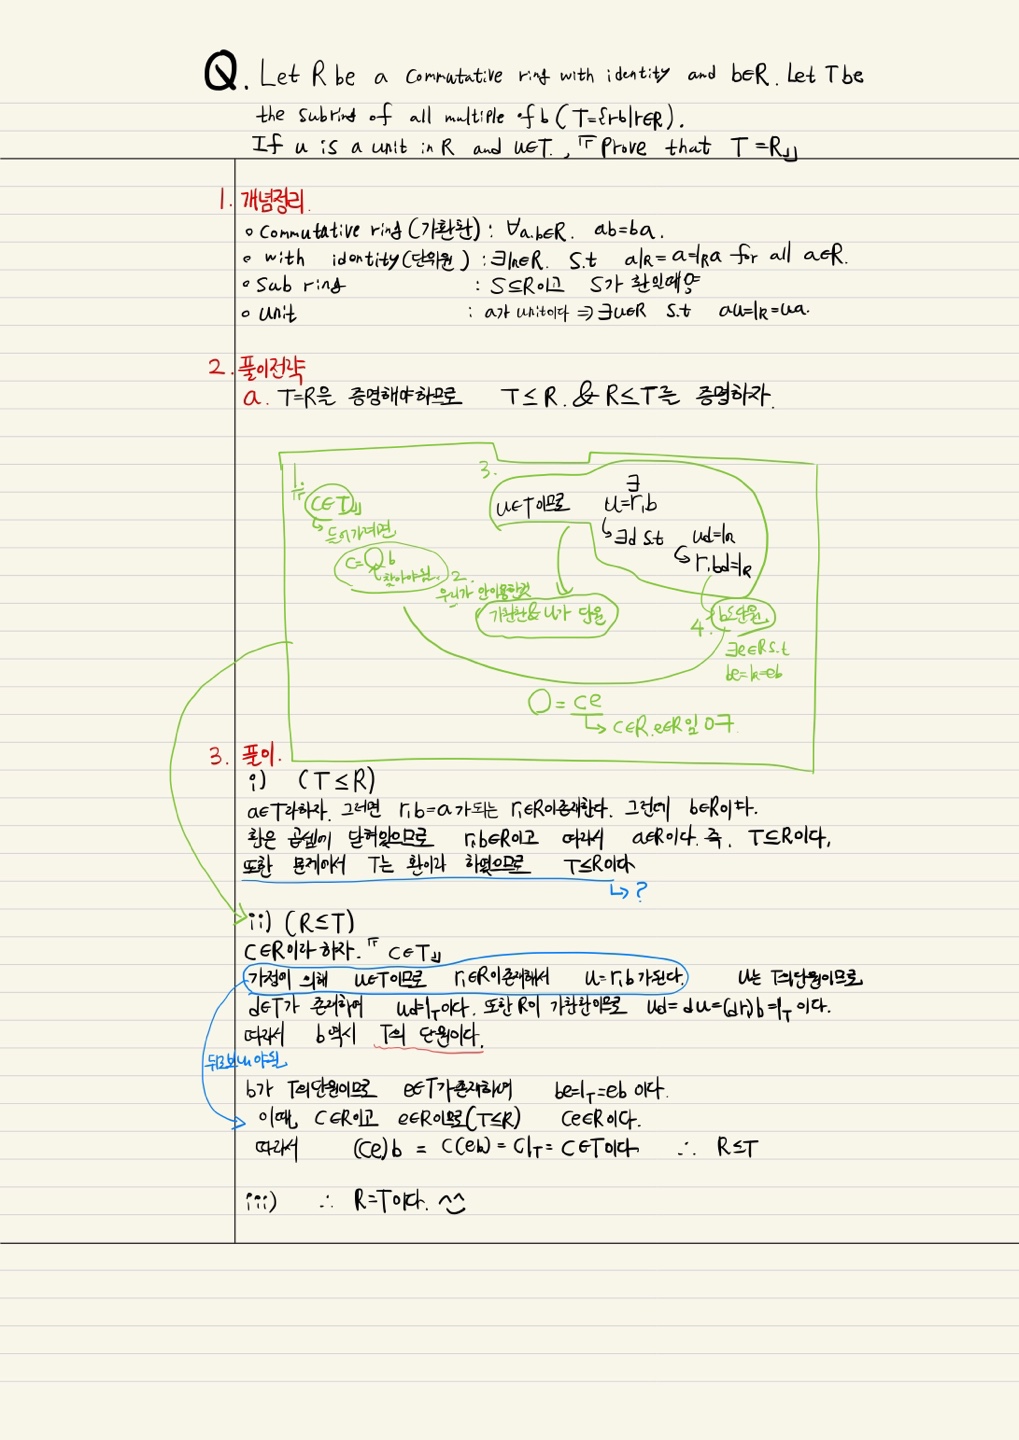 Q. Let R be a commutative ring with identity and b∈R. Let T be
the subring of all multiple of b (T={rb|r∈R}).
If u is a unit in R and u∈T., 『Prove that T=R』
1. 개념정리.
∘ commutative ring(가환환) : ∀a,b∈R. ab=ba.
∘ with identity(단위원) : ∃1R∈R. s.t a1R=a=1Ra for all a∈R.
∘ Sub ring : S⊆R이고 S가 환일때
∘ unit : a가 unit이다 ⇒ ∃u∈R s.t au=1R=ua.
2. 풀이전략
a. T=R을 증명해야하므로 T≤R. & R≤T를 증명하자.
1. 『C∈T』
↳ 들어가려면
C=○b
찾아야됨.
2. 우리가 안이용한것
가환환 & u가 단원
3. u∈T이므로 ∃ u=r₁b
↳ ∃d s.t ud=1R
↳ r₁bd=1R
4. b도 단원
∃e∈R s.t
be=1R=eb
○=ce
↳ C∈R, e∈R임
3. 풀이.
i) (T≤R)
a∈T라하자. 그러면 r₁b=a가되는 r₁∈R이존재한다. 그런데 b∈R이다.
환은 곱셈에 닫혀있으므로 r₁b∈R이고 따라서 a∈R이다. 즉, T⊆R이다,
또한 문제에서 T는 환이라 하였으므로 T≤R이다
↳ ?
ii) (R≤T)
C∈R이라 하자. 『C∈T』
가정에 의해 u∈T이므로 r₁∈R이존재해서 u=r₁b가된다. u는 T의단원이므로,
d∈T가 존재하여 ud=1T이다. 또한 R이 가환환이므로 ud=du=(dr₁)b=1T이다.
따라서 b역시 T의 단원이다.
뒤로보내야됨
b가 T의단원이므로 e∈T가존재하여 be=1T=eb이다.
이때, C∈R이고 e∈R이므로(T≤R) Ce∈R이다.
따라서 (Ce)b = C(eb) = C1T = C∈T이다 ∴ R≤T
iii) ∴ R=T이다. ^^